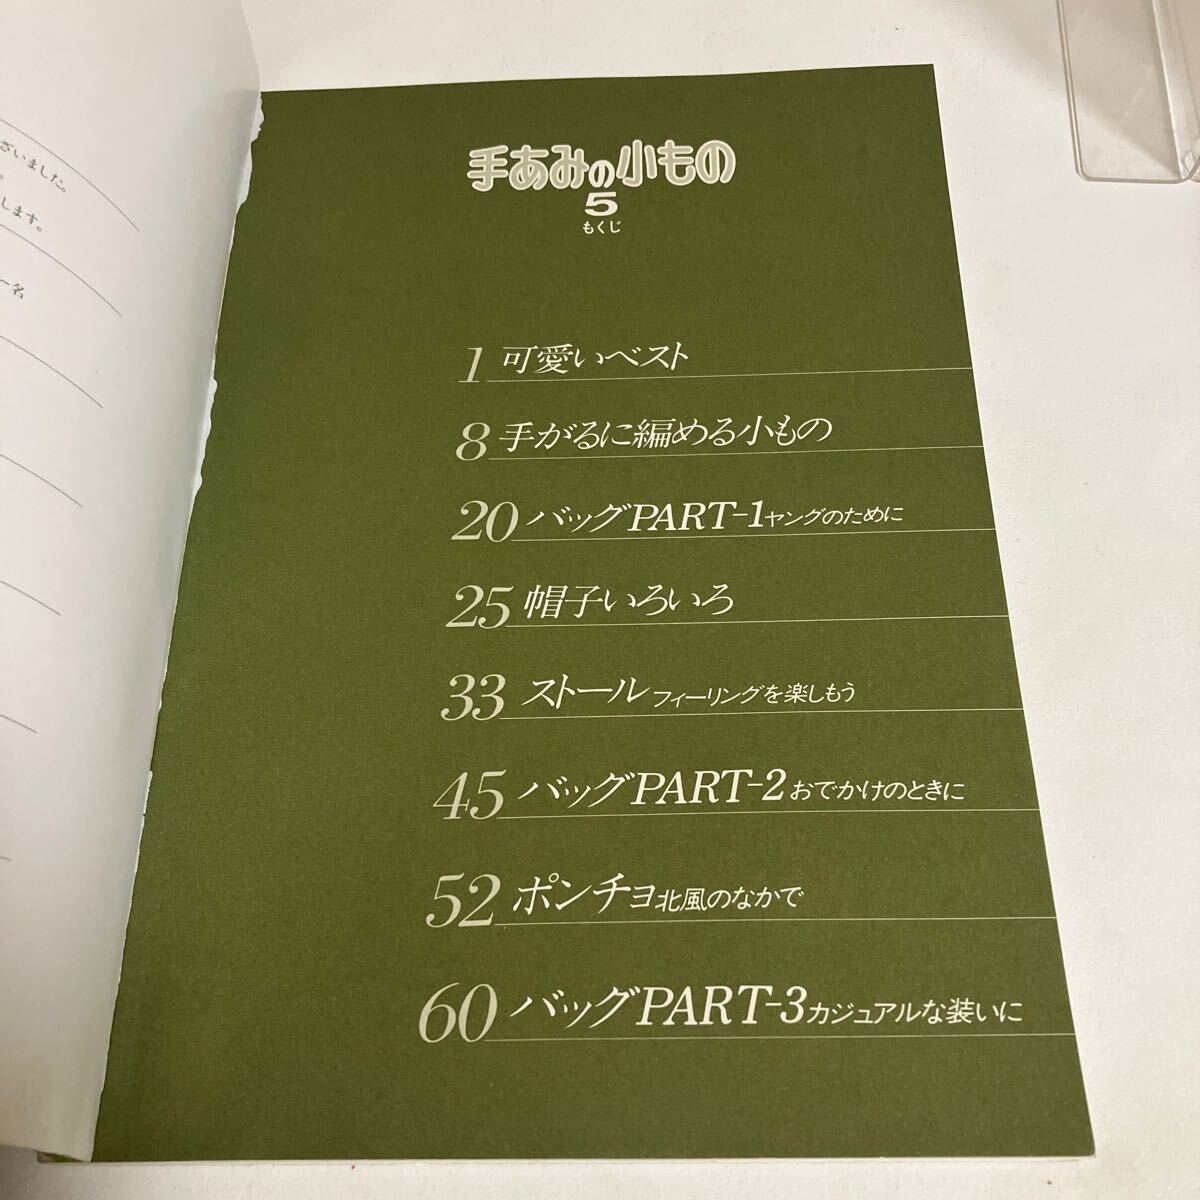 ざいました。
します。
名
手あみの小もの
5
もくじ
1 可愛いベスト
8 手がるに編める小もの
20 バッグPART-1ヤングのために
25 帽子いろいろ
33 ストールフィーリングを楽しもう
45 バッグPART-2おでかけのときに
52 ポンチョ北風のなかで
60 バッグPART-3カジュアルな装いに